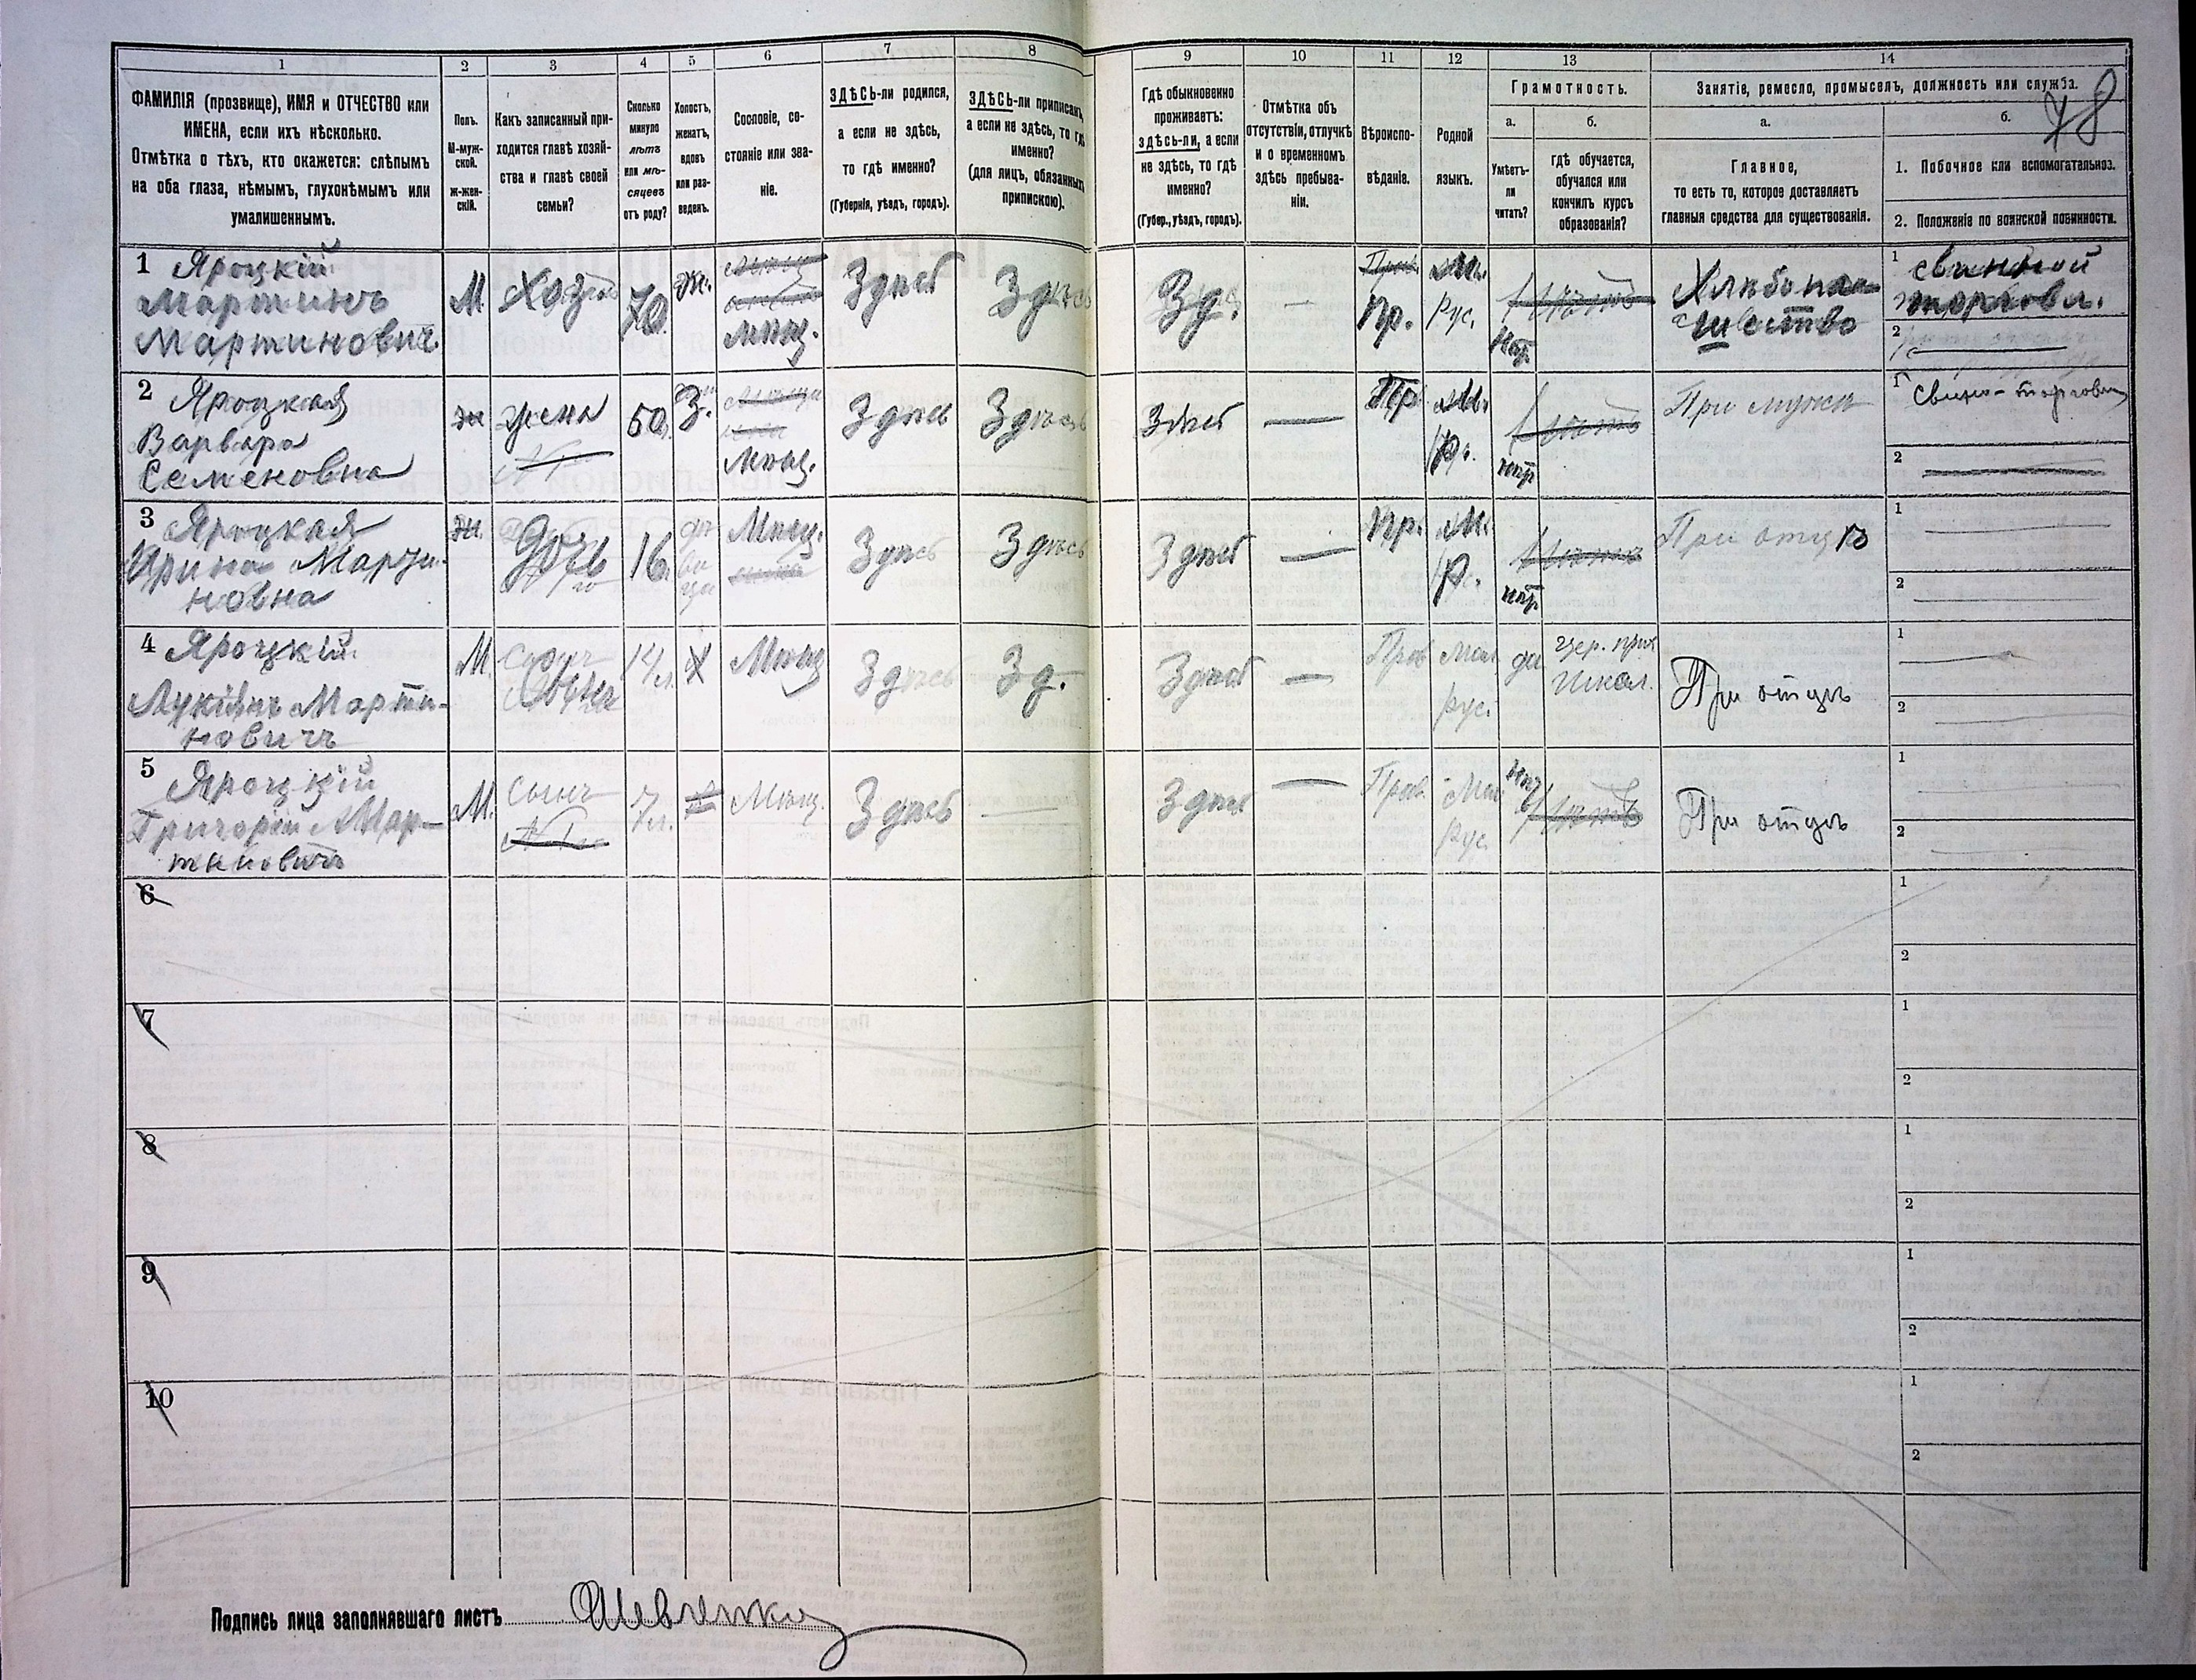 78
1
2
3
4
5
6
7
8
9
10
11
12
13
14
ФАМИЛІЯ (прозвище), ИМЯ и ОТЧЕСТВО или
ИМЕНА, если ихъ нѣсколько.
Отмѣтка о тѣхъ, кто окажется: слѣпымъ
на оба глаза, нѣмымъ, глухонѣмымъ или
умалишеннымъ.
Полъ.
М-муж-
ской.
ж-жен-
скій.
Какъ записанный при-
ходится главѣ хозяй-
ства и главѣ своей
семьи?
Сколько
минуло
лѣтъ
или мѣ-
сяцевъ
отъ роду?
Холостъ,
женатъ,
вдовъ
или раз-
веденъ.
Сословіе, со-
стояніе или зва-
ніе.
ЗДѢСЬ-ли родился,
а если не здѣсь,
то гдѣ именно?
(Губернія, уѣздъ, городъ).
ЗДѢСЬ-ли приписанъ,
а если не здѣсь, то гдѣ
именно?
(для лицъ, обязанныхъ
припискою).
Гдѣ обыкновенно
проживаетъ:
здѣсь-ли, а если
не здѣсь, то гдѣ
именно?
(Губер., уѣздъ, городъ).
Отмѣтка объ
отсутствіи, отлучкѣ
и о временномъ
здѣсь пребыва-
ніи.
Вѣроиспо-
вѣданіе.
Родной
языкъ.
Грамотность.
а.
б.
Умѣетъ-
ли
читать?
гдѣ обучается,
обучался или
кончилъ курсъ
образованія?
Занятіе, ремесло, промыселъ, должность или служба.
а.
б.
Главное,
то есть то, которое доставляетъ
главныя средства для существованія.
1. Побочное или вспомогательное.
2. Положеніе по воинской повинности.
1 Яроцкій
Мартинъ
Мартиновичъ
М
Хозяинъ
70
ж.
мѣщ.
Здѣсь
Здѣсь
Зд.
—
Пр.
М.
Рус.
нѣт
Хлѣбопа-
шество
1 свинной
торговл.
2
2 Яроцкая
Варвара
Семеновна
ж
жена
50
З.
мѣщ.
Здѣсь
Здѣсь
Здѣсь
—
Пр
М.
Р.
нѣт
При мужѣ
1 Свино-торговля
2
3 Яроцкая
Ирина Марти-
новна
ж.
Дочь
16
дѣ
ви
ца
Мѣщ.
Здѣсь
Здѣсь
Здѣсь
—
Пр.
М.
Р.
нѣт
При отцѣ
1
2
4 Яроцкій
Лукіянъ Марти-
новичъ
М.
Сынъ
14 л.
Х
Мѣщ
Здѣсь
Зд.
Здѣсь
—
Прав
Мал
рус.
да
Цер. прих
Школ.
При отцѣ
1
2
5 Яроцкій
Григорій Мар-
тиновичъ
М.
Сынъ
7 л.
Мѣщ.
Здѣсь
—
Здѣсь
—
Прав.
Мал
Рус.
нѣт
При отцѣ
1
2
6
1
2
7
1
2
8
1
2
9
1
2
10
1
2
Подпись лица заполнявшаго листъ Шевченко